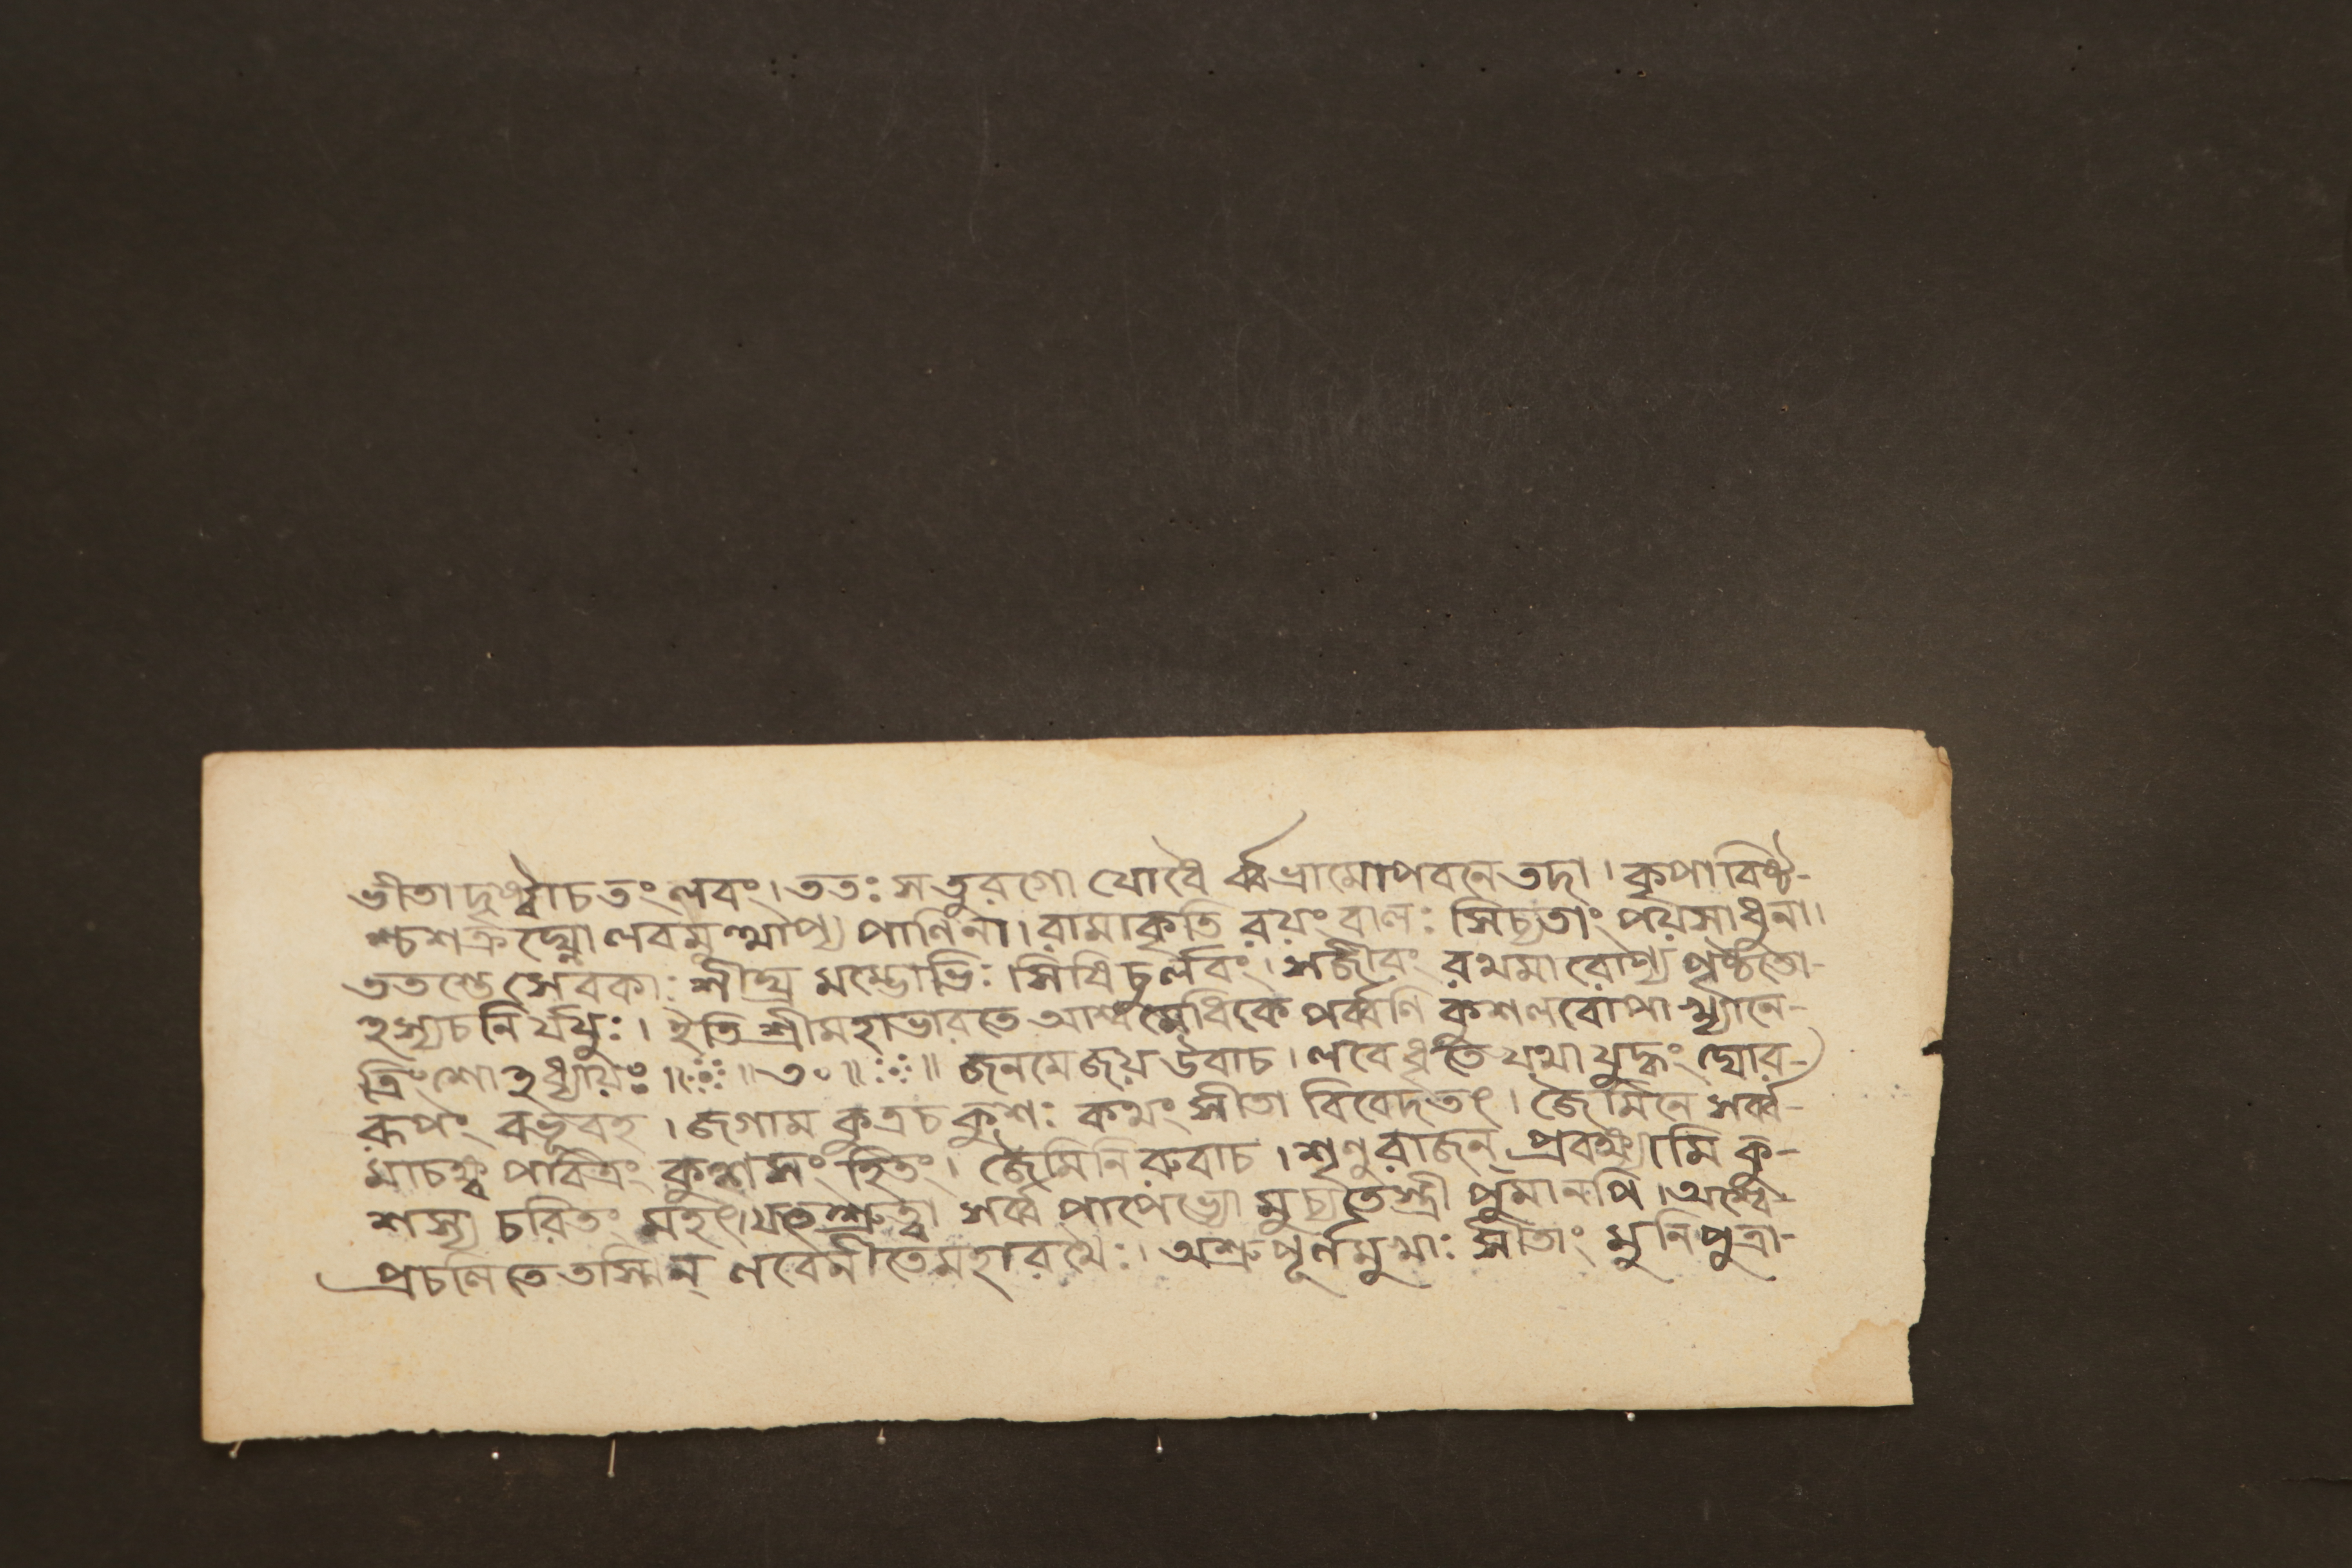 ভীতা দৃষ্ট্বাচ তং লবং। ততঃ স তুরগো যোধৈ র্ব্বভ্রামোপবনে তদা। কৃপাবিষ্ট-
শ্চ শত্রুঘ্নো লবমুত্থাপ্য পাণিনা। রামাকৃতি রয়ং বালঃ সিচ্যতাং পয়সাধুনা।
ততস্তে সেবকাঃ শীঘ্র মম্ভোভিঃ সিষিচুর্লবং। সজীবং রথমারোপ্য পৃষ্ঠতো-
ঽস্যচ নির্যযুঃ। ইতি শ্রীমহাভারতে আশ্বমেধিকে পর্ব্বণি কুশলবোপাখ্যানে-
ত্রিংশোঽধ্যায়ঃ॥ ॥৩০॥ ॥ জনমেজয় উবাচ। লবে ধৃতে যথা যুদ্ধং ঘোর-
রূপং বভূবহ। জগাম কুত্রচ কুশঃ কথং সীতা বিবেদতৎ। জৈমিনে সর্ব্ব-
মাচক্ষ্ব পবিত্রং কুশসংহিতং। জৈমিনি রুবাচ। শৃণু রাজন্ প্রবক্ষ্যামি কু-
শস্য চরিতং মহৎ। যত্তুশ্রুত্বা সর্ব্ব পাপেভ্যো মুচ্যতে স্ত্রী পুমানপি। অশ্বে-
প্রচলিতে তস্মিন্ লবেনীতে মহারথৈঃ। অশ্রুপূর্ণমুখাঃ সীতাং মুনিপুত্রা-